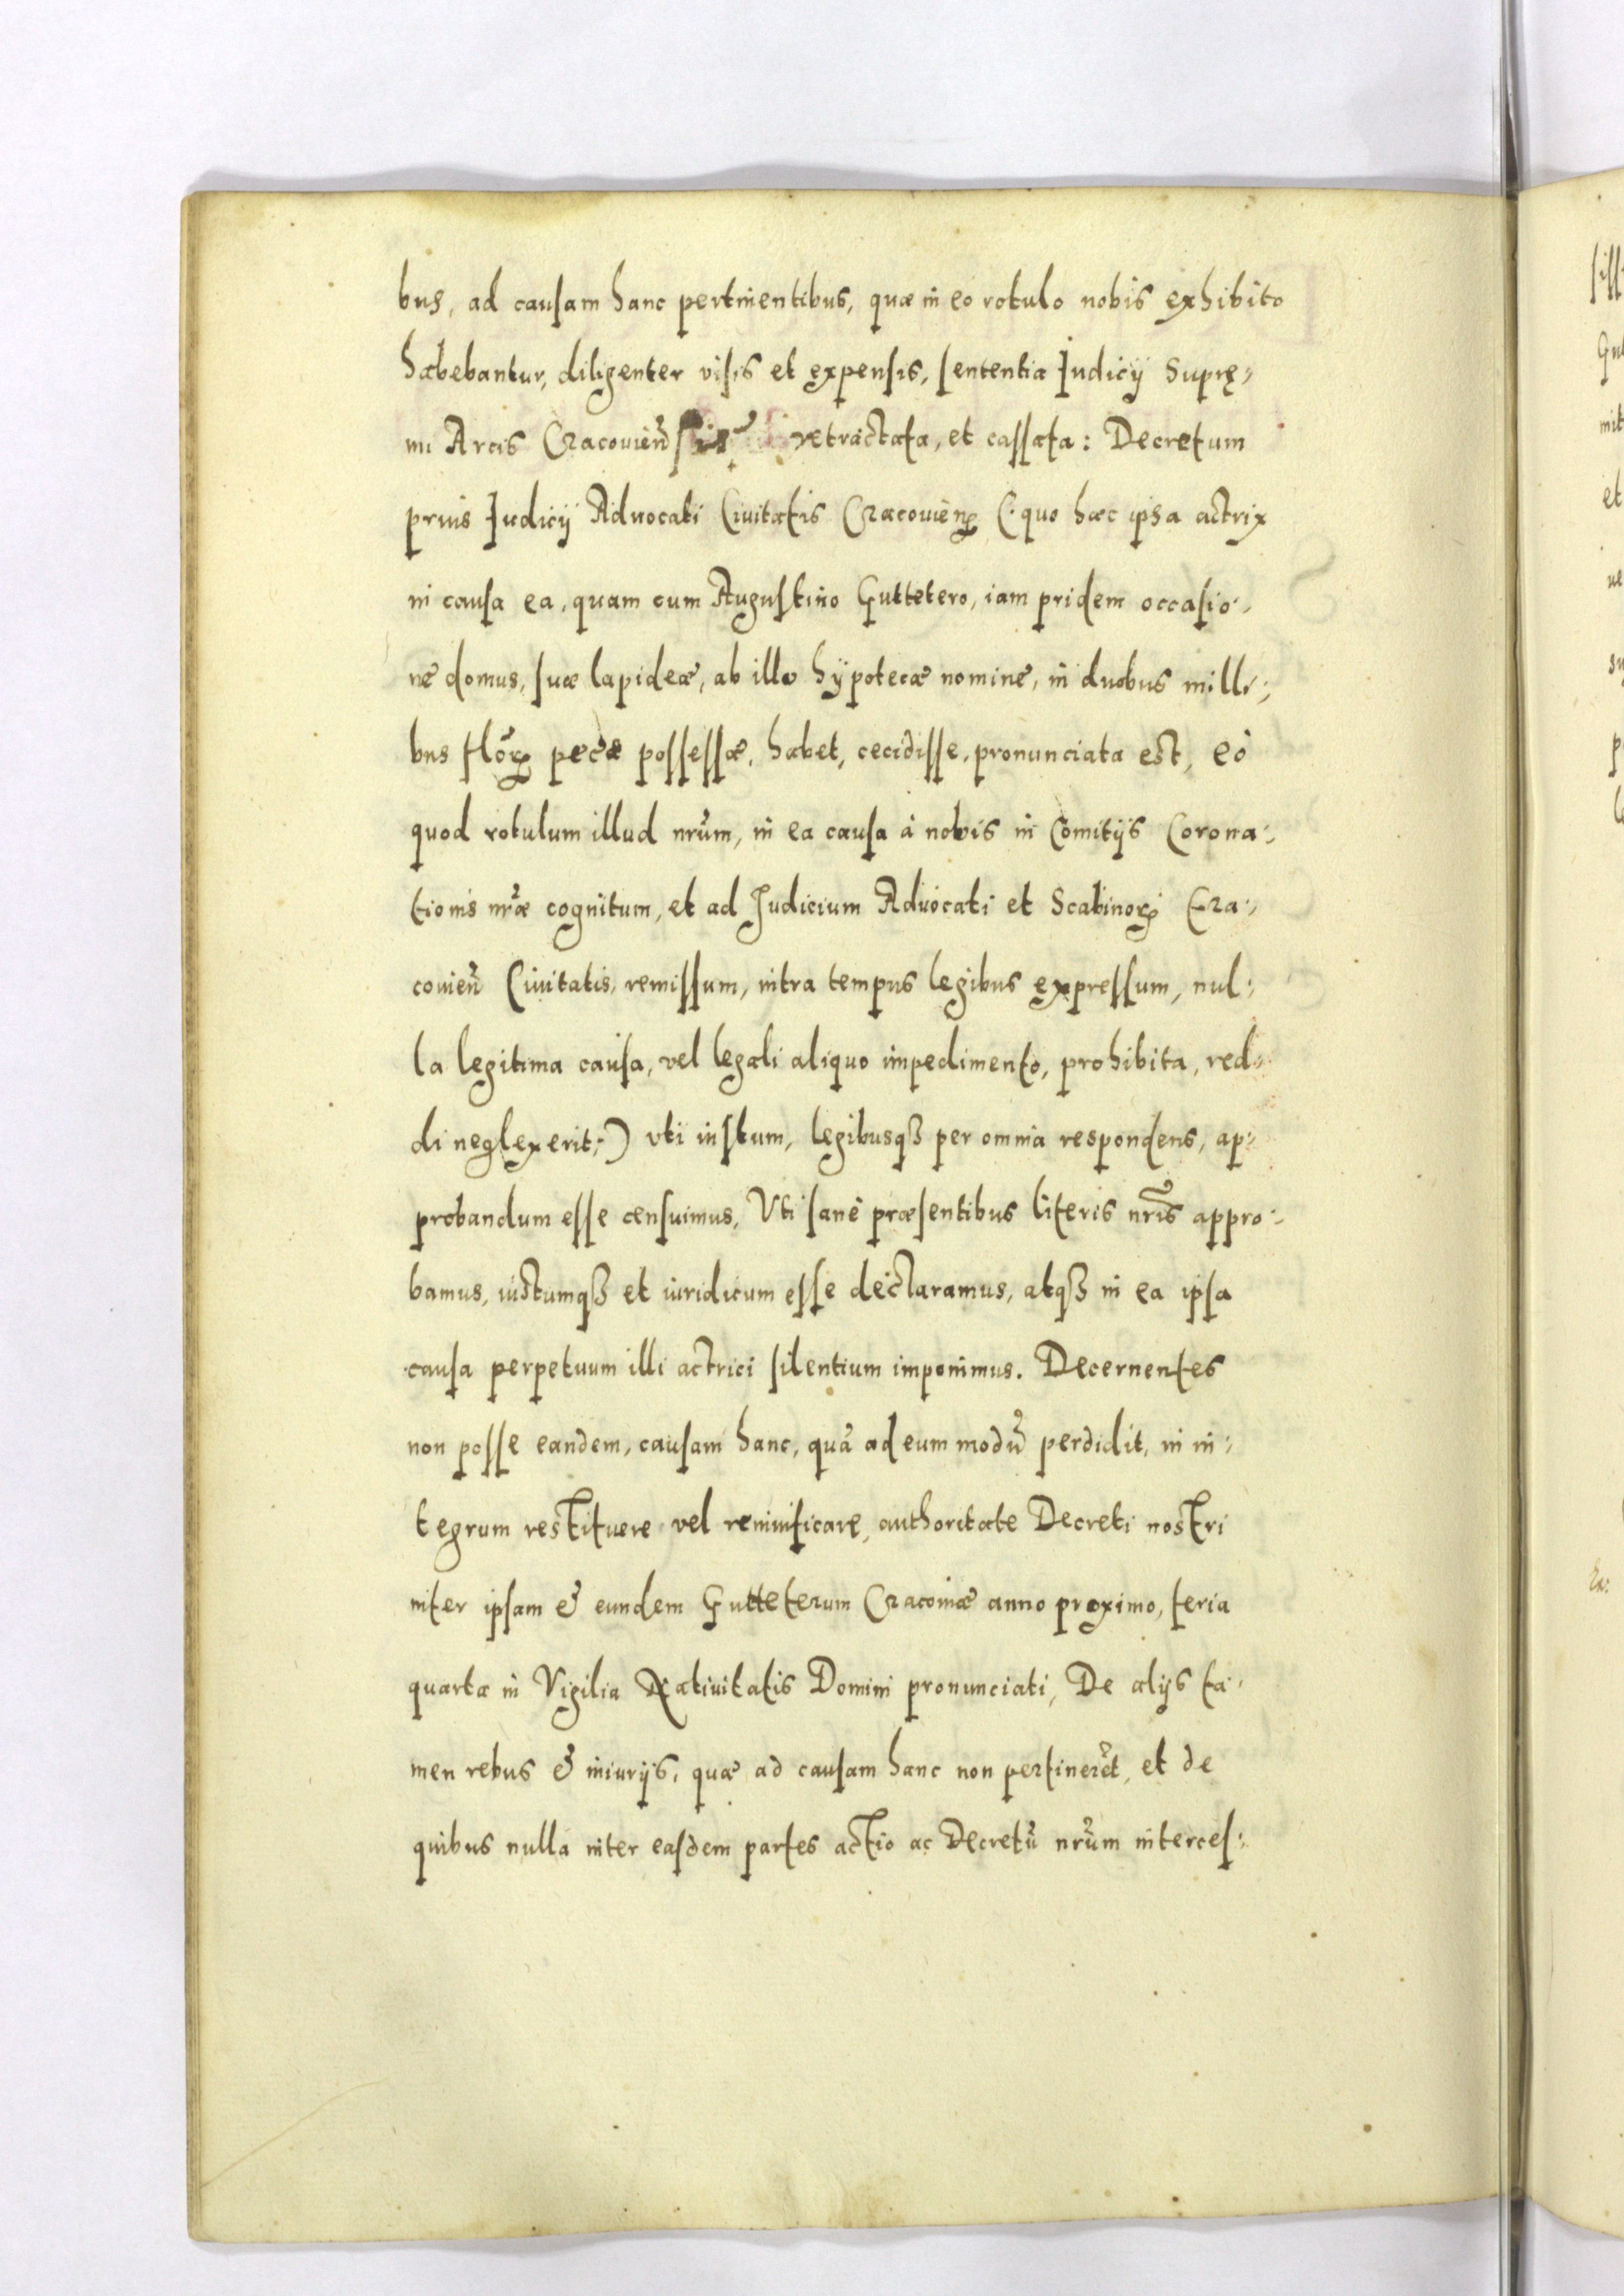 bus, ad causam hanc pertinentibus, quæ in eo rotulo nobis exhibito
habebantur, diligenter visis et expensis, sententia Iudicij Supre⸗
mi Arcis Cracovien̄ retractata, et cassata: Decretum
prius Iudicij Advocati Civitatis Cracovien̄ (: quo hæc ipsa actrix
in causa ea, quam cum Augustino Guttetero, iam pridem occasio⸗
ne domus, suæ lapideæ, ab illo hÿpotecæ nomine, in duobus milli⸗
bus flōꝝ pecæ possessæ, habet, cecidisse, pronunciata est, eò
quod rotulum illud nr̄um, in ea causa à nobis in Comitijs Corona⸗
tionis nr̄æ cognitum, et ad Iudicium Advocati et Scabinoꝝ Cra⸗
covien̄ Civitatis, remissum, intra tempus legibus expressum, nul⸗
la legitima causa, vel legali aliquo impedimento, prohibita, red⸗
di neglexerit:) vti iustum, legibusqꝫ per omnia respondens, ap⸗
probandum esse censuimus, Vti sanè præsentibus literis nr̄is appro⸗
bamus, iustumqꝫ et iuridicum esse declaramus, atqꝫ in ea ipsa
causa perpetuum illi actrici silentium imponimus. Decernentes
non posse eandem, causam hanc, quā ad eum modū perdidit, in in⸗
tegrum restituere vel revivificare, authoritate Decreti nostri
inter ipsam & eundem Gutteterum Cracoviæ anno proximo, feria
quarta in Vigilia Nativitatis Domini pronunciati, De alijs ta⸗
men rebus & iniurijs, quæ ad causam hanc non pertinerēt, et de
quibus nulla inter easdem partes actio ac Decretū nr̄um interces⸗